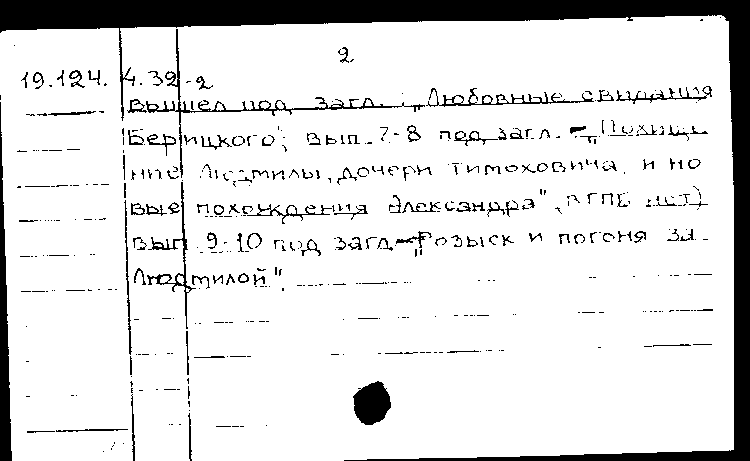 2
19.124. 4.32-2
вышел под загл.: „Любовные свидания
Берицкого", вып. 7-8 под загл. - „Похище
ние Людмилы, дочери Тимоховича, и но
вые похождения Александра", (в ГПБ нет)
вып. 9-10 под загл. - „Розыск и погоня за
Людмилой".